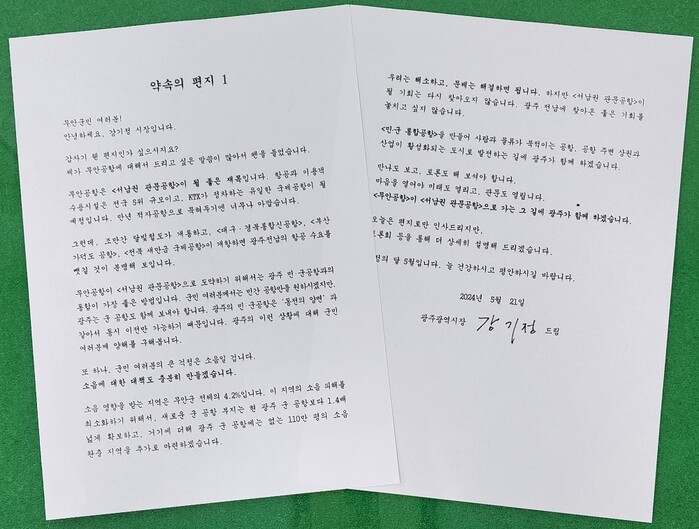 약속의 편지 1
무안군민 여러분!
안녕하세요, 강기정 시장입니다.
갑자기 웬 편지인가 싶으시지요?
제가 무안공항에 대해서 드리고 싶은 말씀이 많아서 펜을 들었습니다.
무안공항은 <서남권 관문공항>이 될 좋은 재목입니다. 활주로와 이용객
수용시설은 전국 5위 규모이고, KTX가 정차하는 유일한 국제공항이 될
예정입니다. 만년 적자공항으로 묵혀두기엔 너무나 아깝습니다.
그런데, 조만간 달빛철도가 개통하고, <대구·경북통합신공항>, <부산
가덕도 공항>, <전북 새만금 국제공항>이 개항하면 광주전남의 항공 수요를
뺏길 것이 분명해 보입니다.
무안공항이 <서남권 관문공항>으로 도약하기 위해서는 광주 민·군공항과의
통합이 가장 좋은 방법입니다. 군민 여러분께서는 민간 공항만을 원하시겠지만,
광주는 군 공항도 함께 보내야 합니다. 광주의 민·군공항은 '동전의 양면' 과
같아서 동시 이전만 가능하기 때문입니다. 광주의 이런 상황에 대해 군민
여러분께 양해를 구해봅니다.
또 하나, 군민 여러분의 큰 걱정은 소음일 겁니다.
소음에 대한 대책도 충분히 만들겠습니다.
소음 영향을 받는 지역은 무안군 전체의 4.2%입니다. 이 지역의 소음 피해를
최소화하기 위해서, 새로운 군 공항 부지는 현 광주 군 공항보다 1.4배
넓게 확보하고, 거기에 더해 광주 군 공항에는 없는 110만 평의 소음
완충 지역을 추가로 마련하겠습니다.
우려는 해소하고, 문제는 해결하면 됩니다. 하지만 <서남권 관문공항>이
될 기회는 다시 찾아오지 않습니다. 광주 전남에 찾아온 좋은 기회를
놓치고 싶지 않습니다.
<민·군 통합공항>을 만들어 사람과 물류가 북적이는 공항, 공항 주변 상권과
산업이 활성화되는 도시로 발전하는 길에 광주가 함께 하겠습니다.
만나도 보고, 토론도 해 보아야 합니다.
마음을 열어야 미래도 열리고, 관문도 열립니다.
<무안공항>이 <서남권 관문공항>으로 가는 그 길에 광주가 함께 하겠습니다.
오늘은 편지로만 인사드리지만,
토론회 등을 통해 더 상세히 설명해 드리겠습니다.
정의 달 5월입니다. 늘 건강하시고 평안하시길 바랍니다.
2024년 5월 21일
광주광역시장 강기정 드림